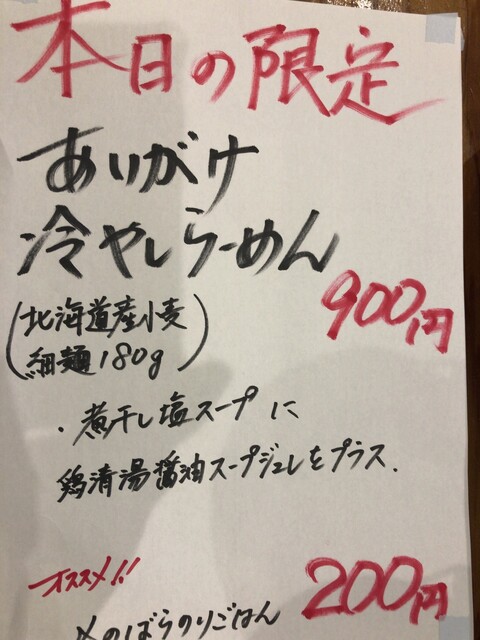 本日の限定
あいがけ
冷やしらーめん
900円
(北海道産小麦
細麺180g)
・煮干し塩スープに
鶏清湯醤油スープジュレをプラス.
オススメ!!
200円
〆のばらのりごはん